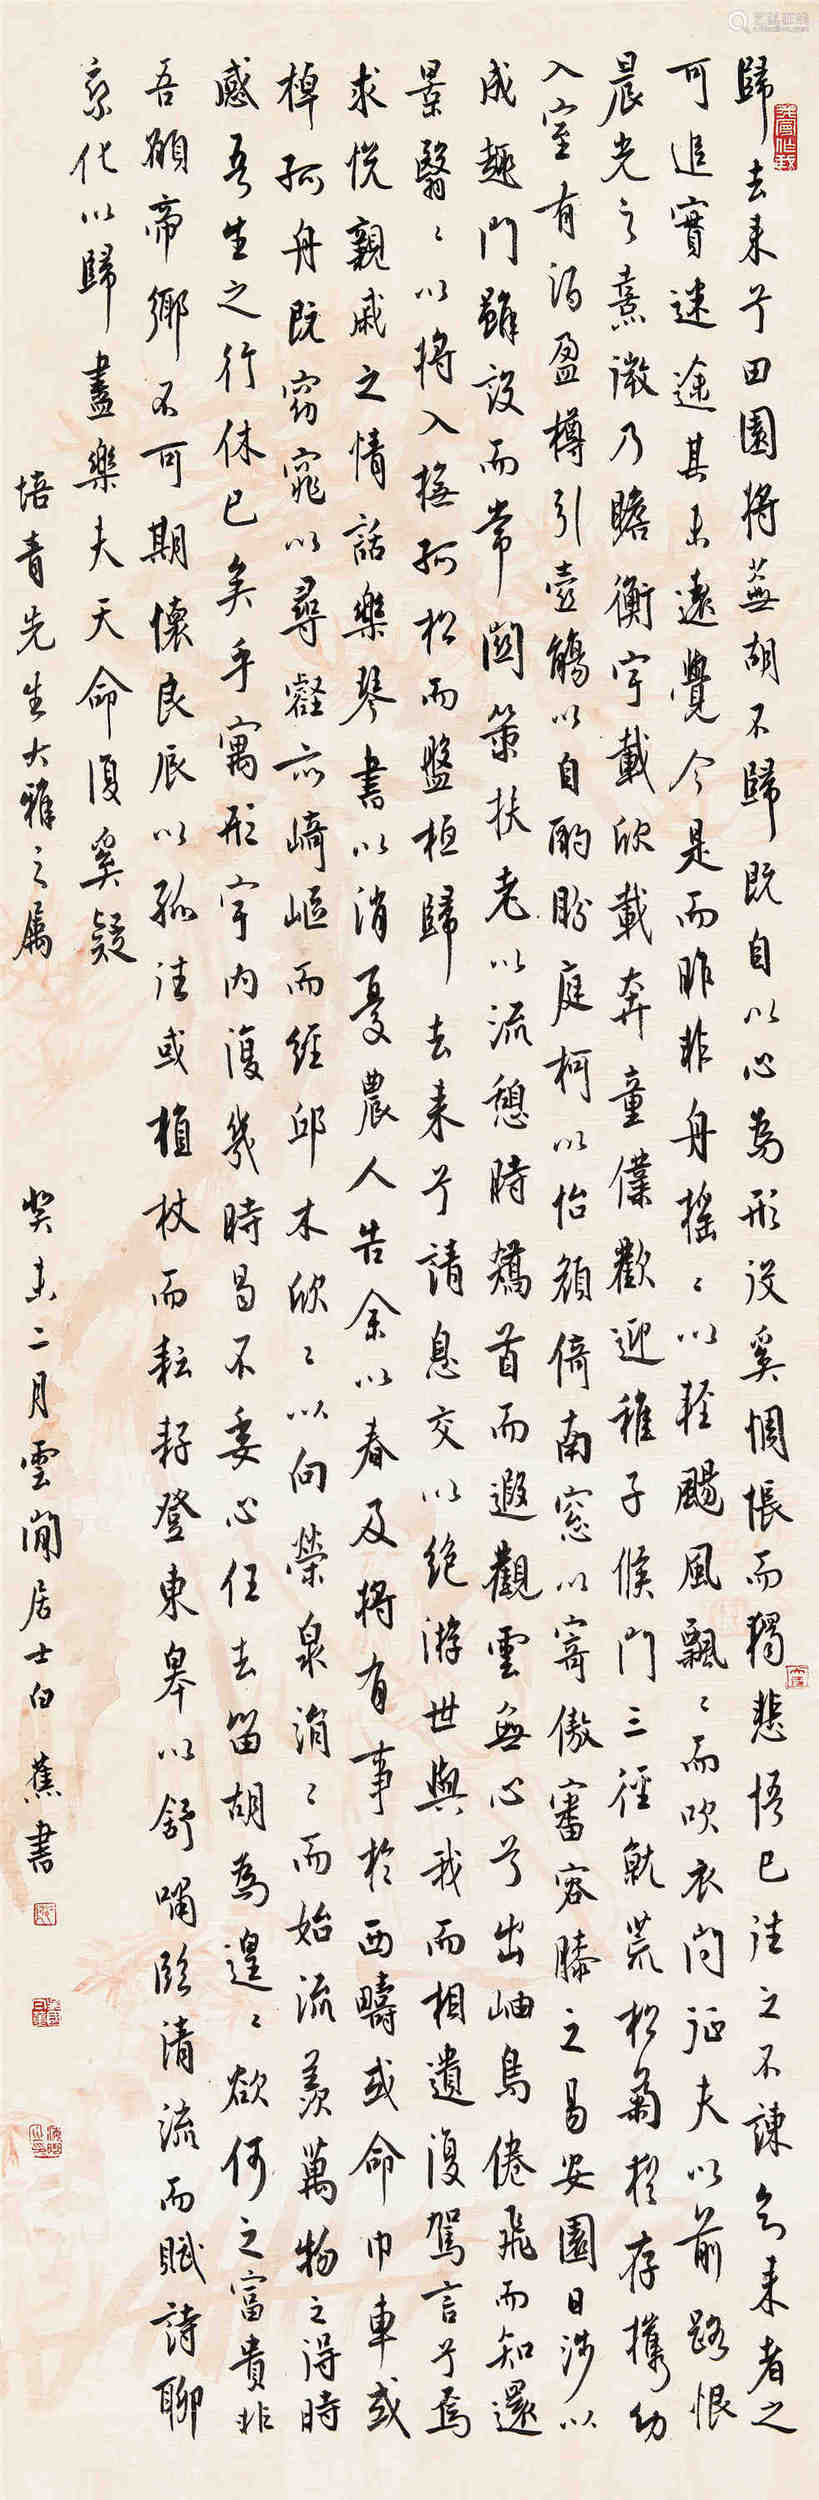 歸去來兮田園將蕪胡不歸既自以心為形役奚惆悵而獨悲悟已往之不諫知來者之
可追實迷途其未遠覺今是而昨非舟搖〻以輕颺風飄〻而吹衣問征夫以前路恨
晨光之熹微乃瞻衡宇載欣載奔童僕歡迎稚子候門三徑就荒松菊猶存攜幼
入室有酒盈樽引壺觴以自酌盼庭柯以怡顏倚南窗以寄傲審容膝之易安園日涉以
成趣門雖設而常關策扶老以流憩時矯首而遐觀雲無心兮出岫鳥倦飛而知還
景翳〻以將入撫孤松而盤桓歸去來兮請息交以絕游世與我而相遺復駕言兮焉
求悅親戚之情話樂琴書以消憂農人告余以春及將有事於西疇或命巾車或
棹孤舟既窈窕以尋壑亦崎嶇而經邱木欣〻以向榮泉涓〻而始流羨萬物之得時
感吾生之行休已矣乎寓形宇內復幾時曷不委心任去留胡為遑〻欲何之富貴非
吾願帝鄉不可期懷良辰以孤往或植杖而耘耔登東皋以舒嘯臨清流而賦詩聊
乘化以歸盡樂夫天命復奚疑
培青先生大雅之屬 癸未二月雲間居士白蕉書